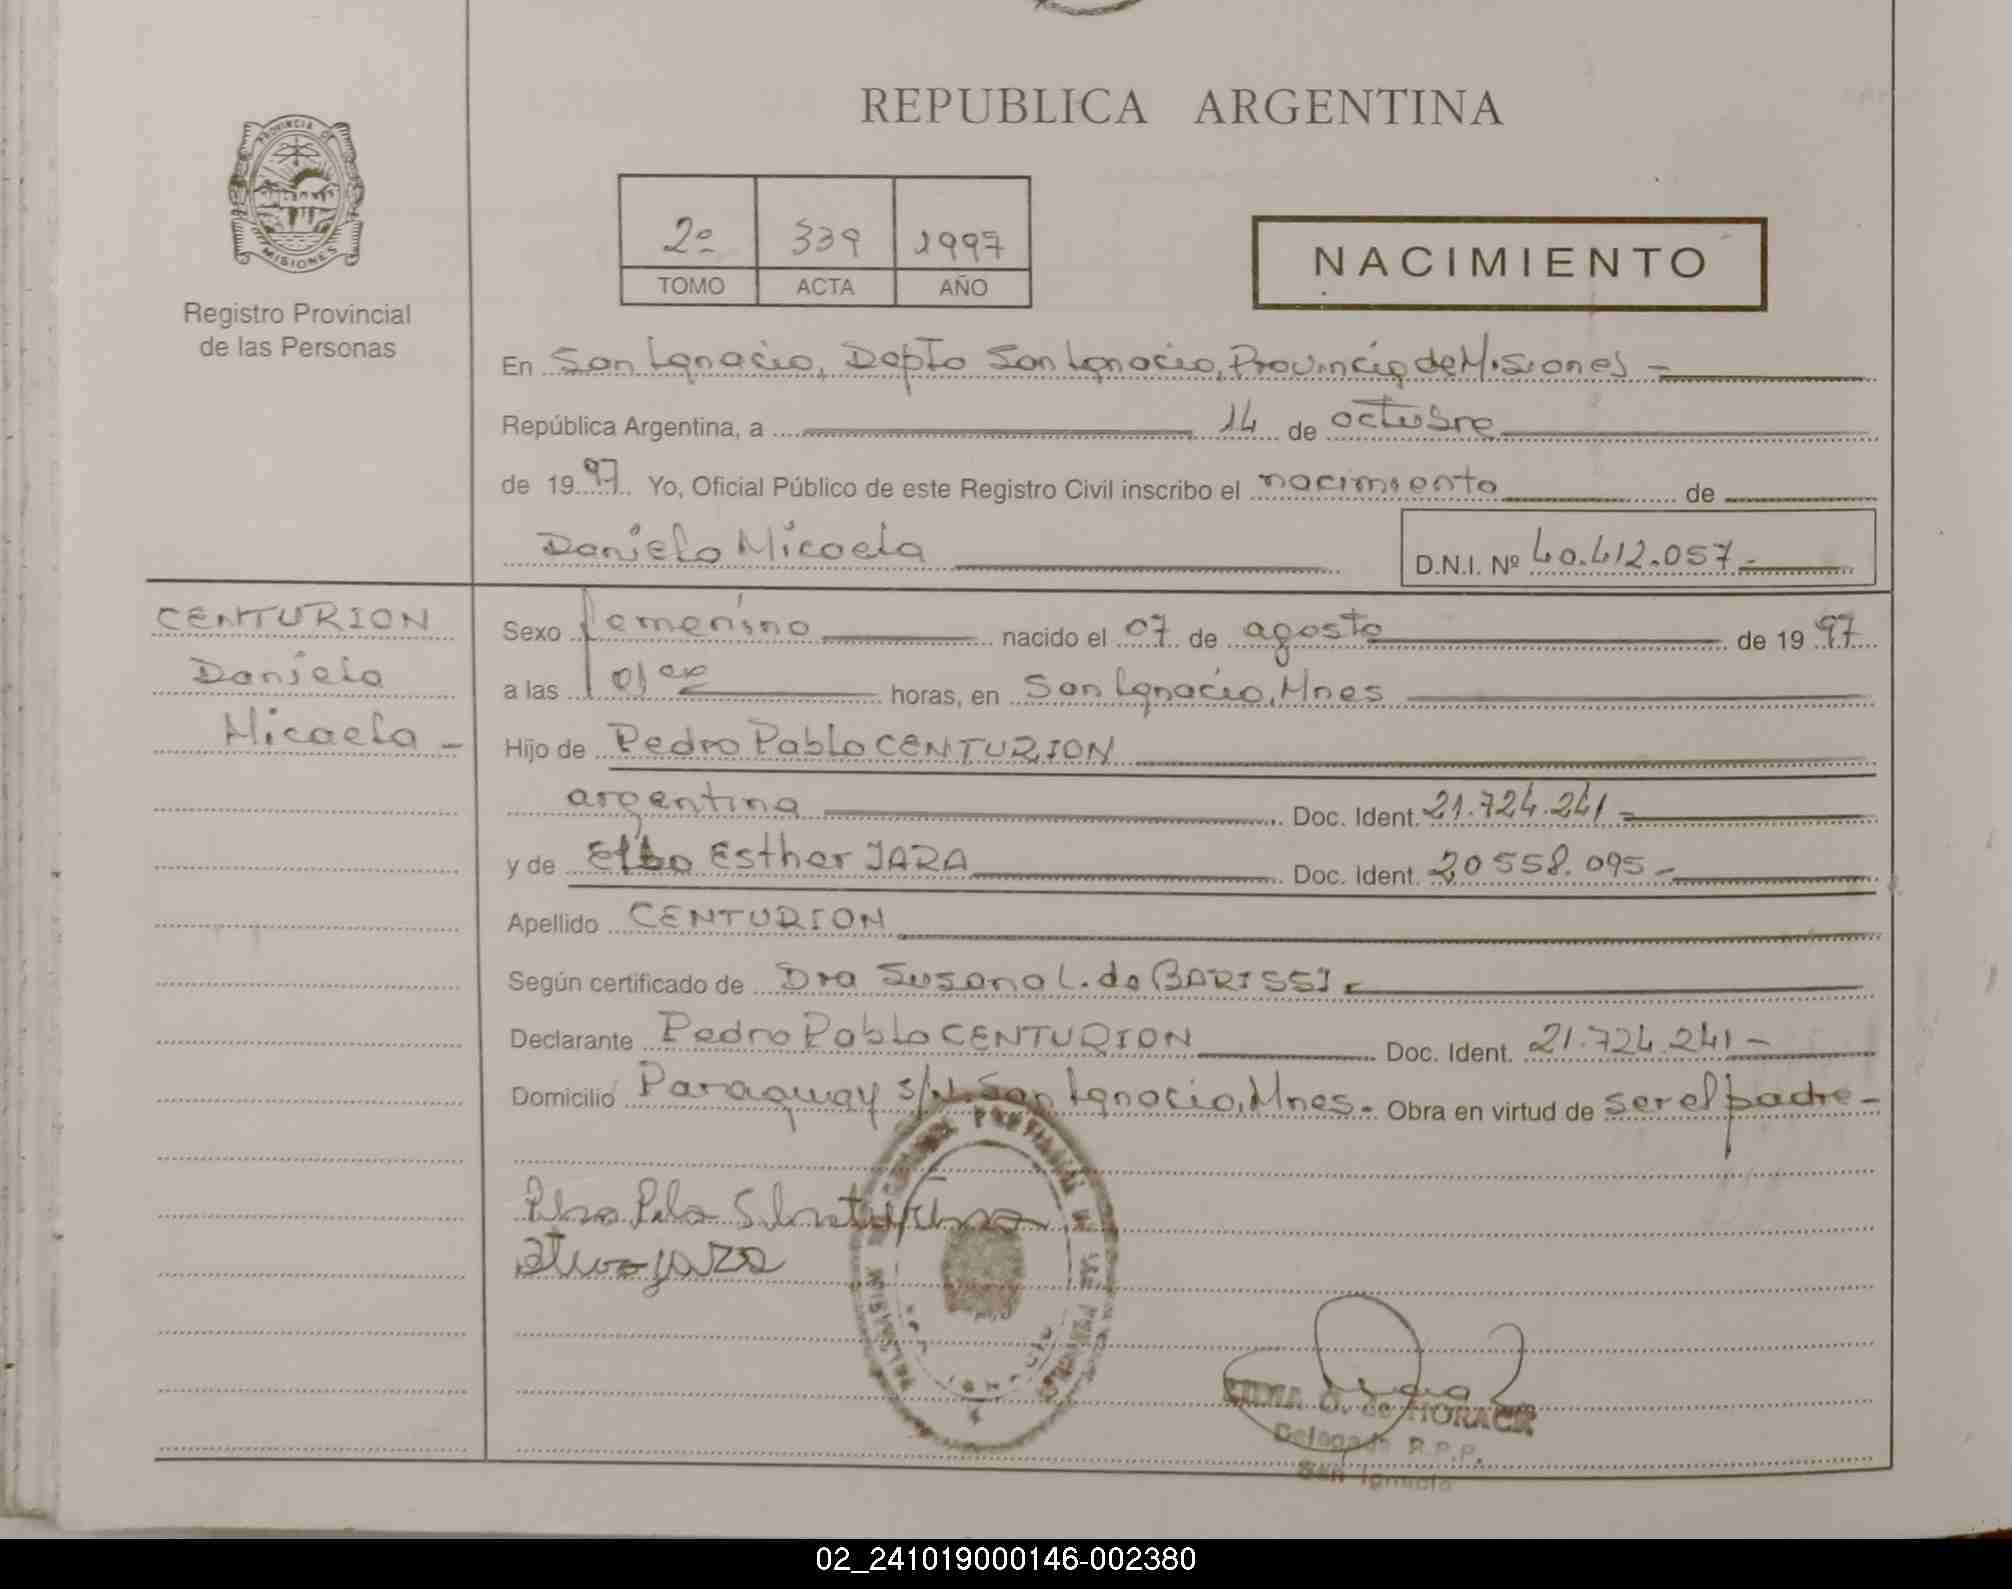 PROVINCIA DE
MISIONES
Registro Provincial
de las Personas
REPUBLICA ARGENTINA
2º 339 1997
TOMO ACTA AÑO
NACIMIENTO
En San Ignacio, Depto San Ignacio, Provincia de Misiones -
República Argentina, a 14 de octubre
de 1997. Yo, Oficial Público de este Registro Civil inscribo el nacimiento de
Daniela Micaela
D.N.I. Nº 40.412.057-
CENTURION
Daniela
Micaela -
Sexo femenino nacido el 07 de agosto de 1997
a las 01 horas, en San Ignacio, Mnes
Hijo de Pedro Pablo CENTURION
argentina Doc. Ident. 21.724.241-
y de Elba Esther JARA Doc. Ident. 20 558.095-
Apellido CENTURION
Según certificado de Dra Susana L. de BARISSI-
Declarante Pedro Pablo CENTURION Doc. Ident. 21.724.241-
Domicilio Paraguay s/N. San Ignacio, Mnes. Obra en virtud de ser el padre-
O. de HORACK
Delegada R.P.P.
San Ignacio
02_241019000146-002380